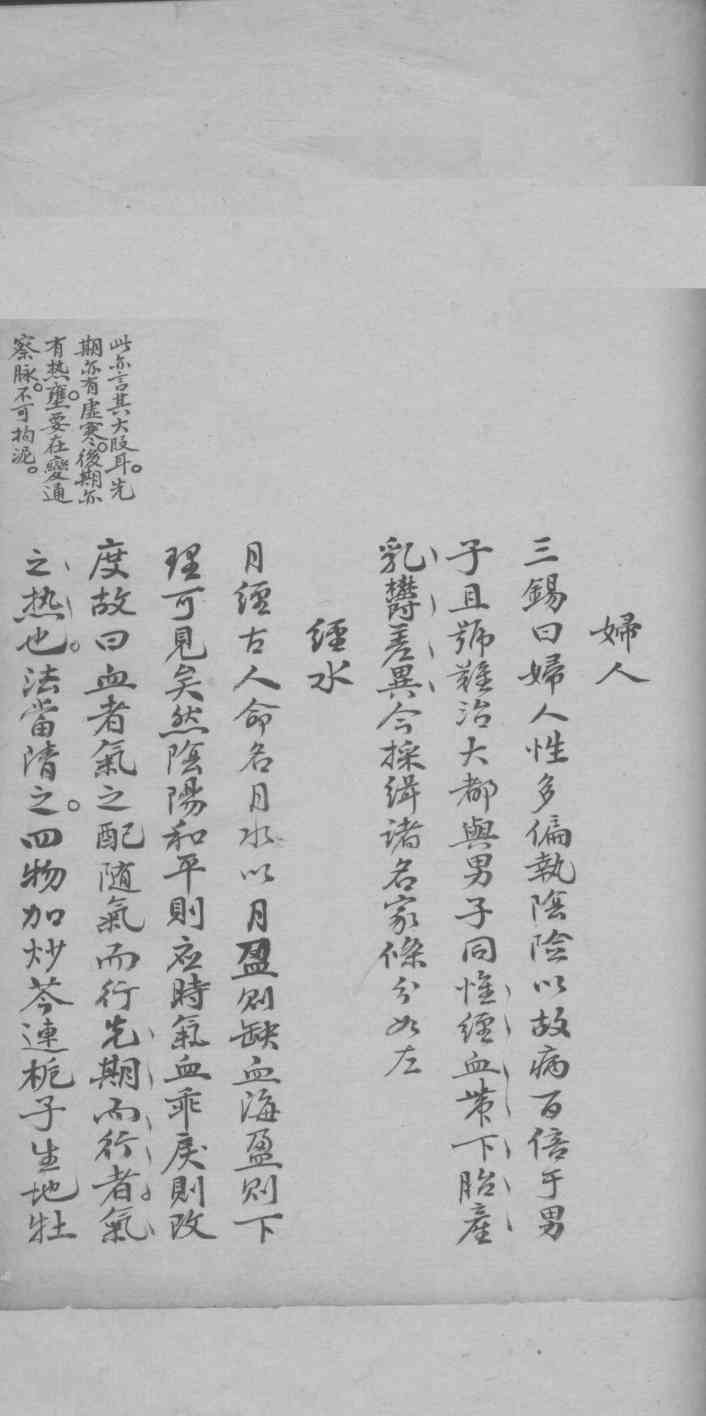 婦人
三錫曰婦人性多偏執陰險以故病百倍于男
子且號難治大都與男子同惟經血帶下胎產
乳欝差異今採緝諸名家條分如左
經水
月經古人命名月水以月盈則缺血海盈則下
理可見矣然陰陽和平則應時氣血乖戾則改
度故曰血者氣之配隨氣而行先期而行者氣
之热也。法當清之。四物加炒芩連梔子生地牡
此亦言其大段耳。先
期亦有虛寒。後期亦
有热壅。要在變通
察脉。不可拘泥。